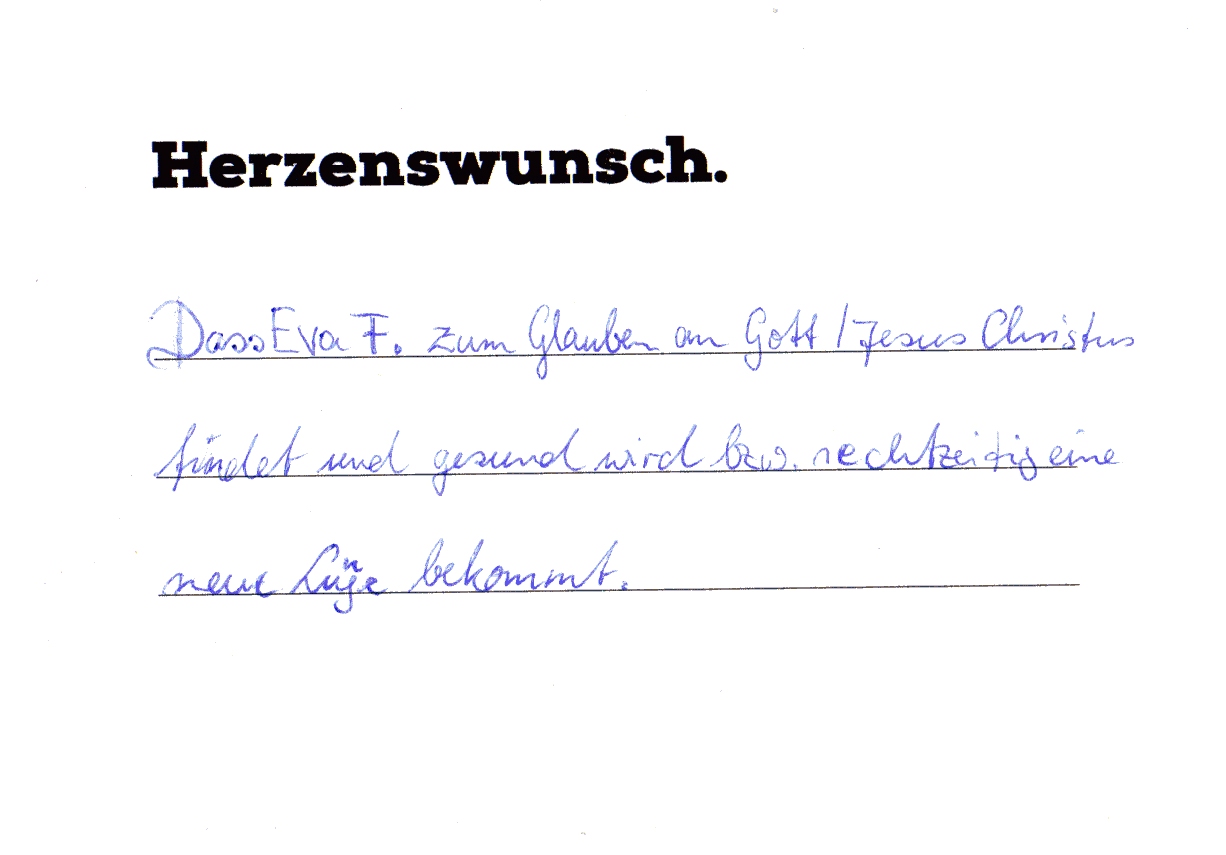 Herzenswunsch.
Dass Eva F. zum Glauben an Gott / Jesus Christus
findet und gesund wird bzw. rechtzeitig eine
neue bekommt.